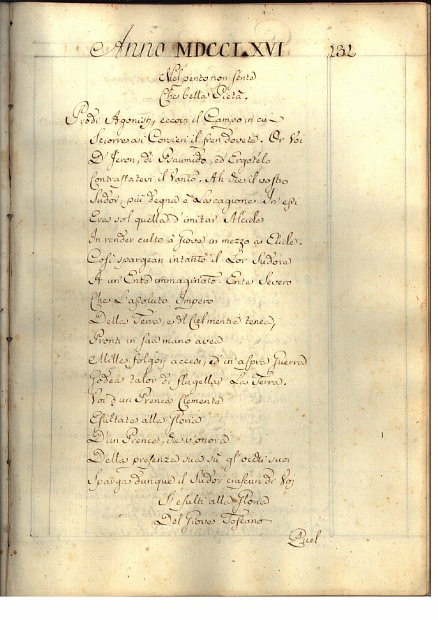 Anno MDCCLXVI 232
Nel petto non sente
Che bella Pietà.
Prodi Agonisti, eccovi il Campo in cui
Sciorre ai Corsieri il fren dovete. Or Voi
D'Jeron, di Psaumido, ed Ergotelo
Contrastatevi il Vanto. Ah che il vostro
Sudor, più degna è La cagione. In essi
Era sol quella d'imitar Alcide
In render culto à Giove in mezzo a Elide.
Così spargean intanto il Lor Sudore
A un' Ente immaginato. Ente Severo
Che L'assoluto Impero
Della Terra, e del Ciel mentre tenea,
Pronti in sua mano avea
Mille folgori accesi, ed in aspra Guerra
Godea talor di flagellar La Terra.
Voi d'un Prence Clemente
Esultate alla Gloria
D'un Prence, che v'onora
Della presenza sua sù gl'occhi suoi
Sparga dunque il Sudor ciascun di Voi
Si esulti alla Gloria
Del Giove Toscano
Quel